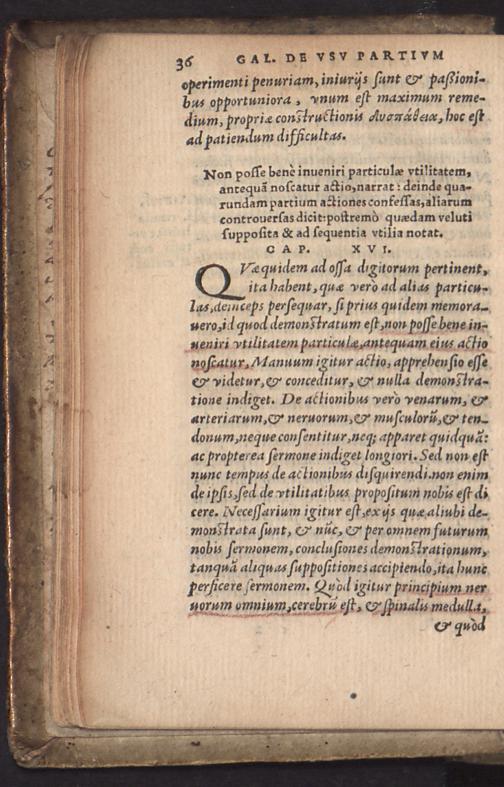 36 GAL. DE VSV PARTIVM
operimenti penuriam, iniurijs sunt & paßioni-
bus opportuniora, vnum est maximum reme-
dium, propriæ constructionis δυσπάθεια, hoc est
ad patiendum difficultas.
Non posse benè inueniri particulæ vtilitatem,
antequā noscatur actio, narrat: deinde qua-
rundam partium actiones confessas, aliarum
controuersas dicit: postremò quædam veluti
supposita & ad sequentia vtilia notat.
CAP. XVI.
QVæ quidem ad ossa digitorum pertinent,
ita habent, quæ verò ad alias particu-
las, deinceps persequar, si prius quidem memora-
uero, id quod demonstratum est, non posse bene in-
ueniri vtilitatem particulæ, antequam eius actio
noscatur. Manuum igitur actio, apprehensio esse
& videtur, & conceditur, & nulla demonstra-
tione indiget. De actionibus verò venarum, &
arteriarum, & neruorum, & musculorū, & ten-
donum, neque consentitur, neq; apparet quidquā:
ac propterea sermone indiget longiori. Sed non est
nunc tempus de actionibus disquirendi. non enim
de ipsis, sed de vtilitatibus propositum nobis est di
cere. Necessarium igitur est, ex ijs quæ aliubi de-
monstrata sunt, & nūc, & per omnem futurum
nobis sermonem, conclusiones demonstrationum,
tanquā aliquas suppositiones accipiendo, ita hunc
perficere sermonem. Quòd igitur principium ner
uorum omnium, cerebrū est, & spinalis medulla,
& quòd